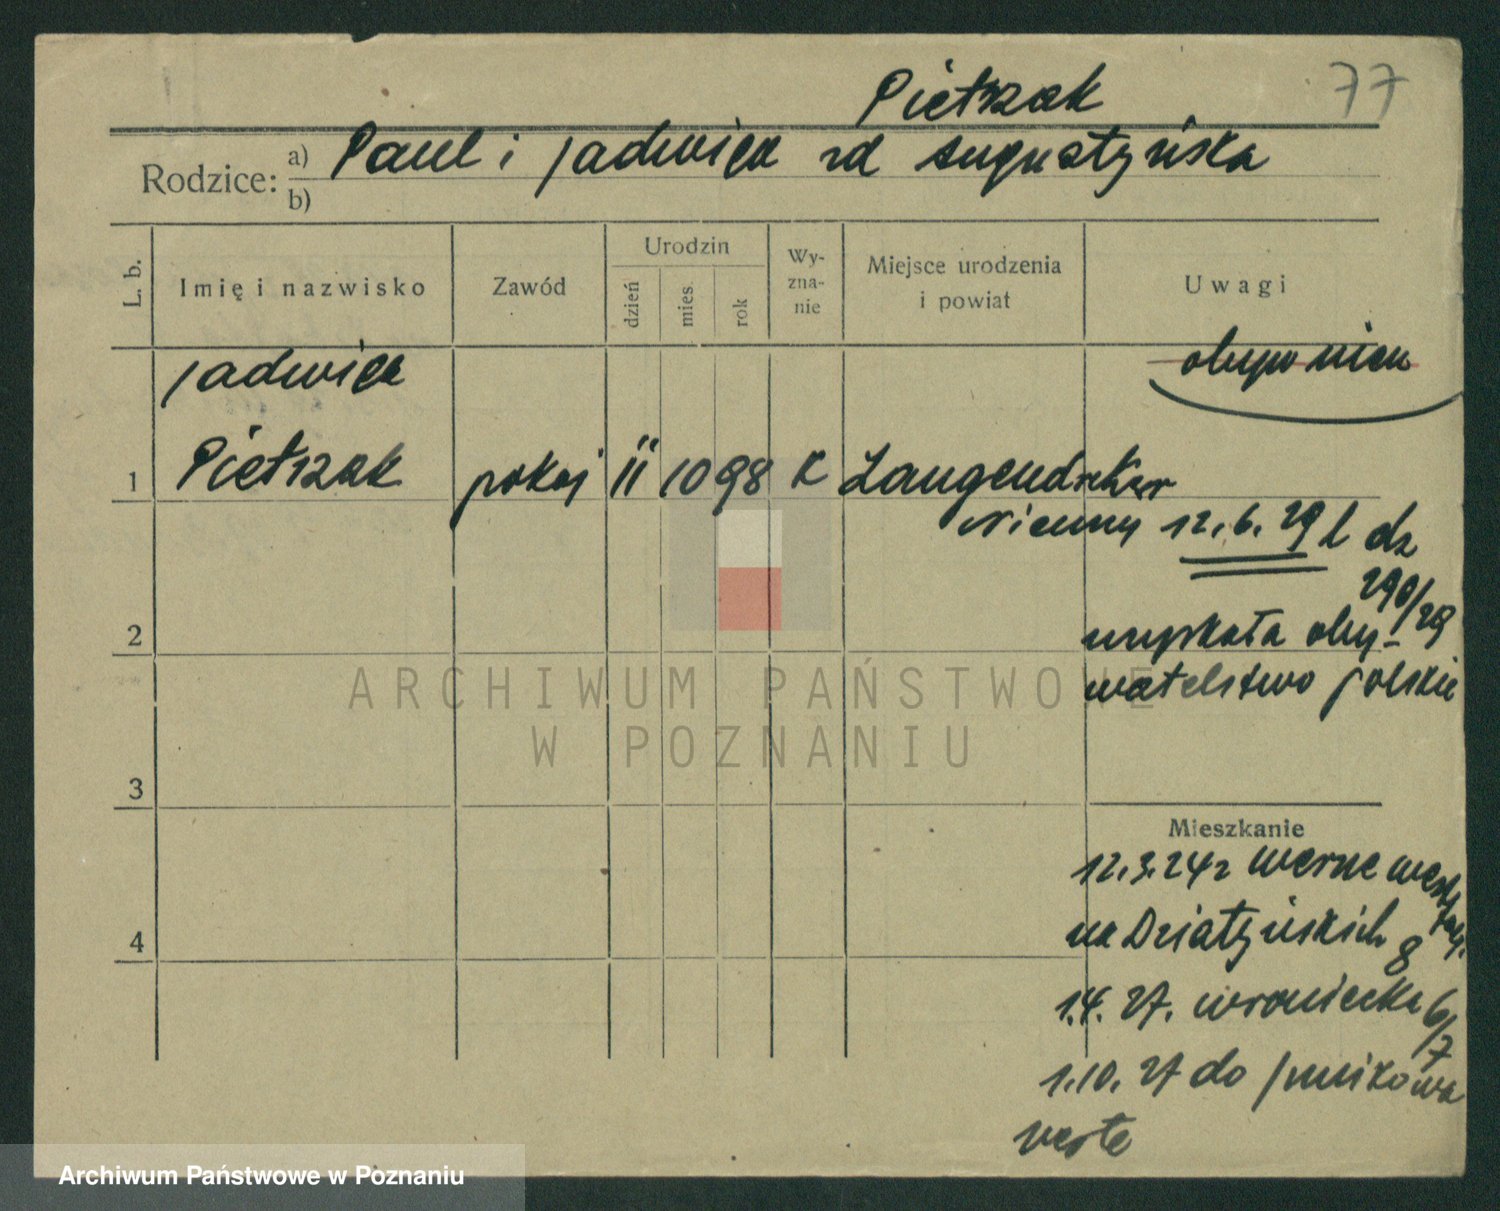 77
Pietrzak
Rodzice: a) Paul i Jadwiga zd Augustyńska
b)
L. b. Imię i nazwisko Zawód Urodzin dzień mies. rok Wyznanie Miejsce urodzenia i powiat Uwagi
Jadwiga obyw niem
1 Pietrzak pokoj 11 10 98 K Langendreer
niemcy 12.6.29 L dz
290/29
2 uzyskała oby-
watelstwo polskie
ARCHIWUM PAŃSTWOWE
W POZNANIU
3
Mieszkanie
12.3.24 z Werne Westf
4 na Działyńskich 8
1.4.27. Wroniecka 6/7
1.10.27 do
Archiwum Państwowe w Poznaniu